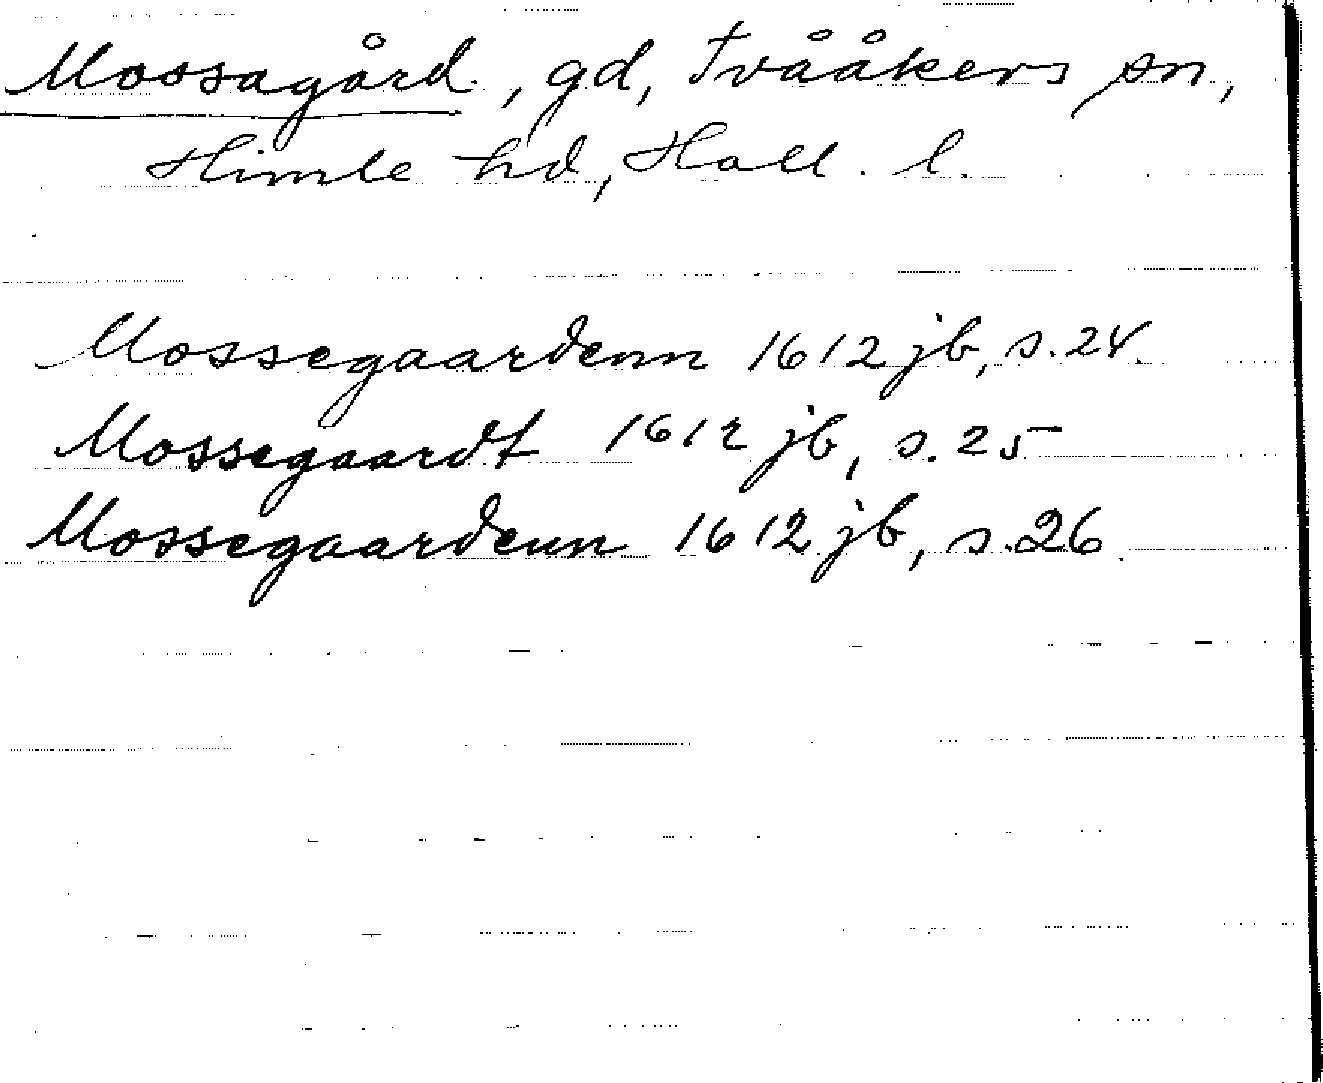 Mossagård, gd, Tvååkers sn,
Himle hd, Hall. l.
Mossegaardenn 1612 jb, s. 24.
Mossegaardt 1612 jb, s. 25
Mossegaardenn 1612 jb, s. 26